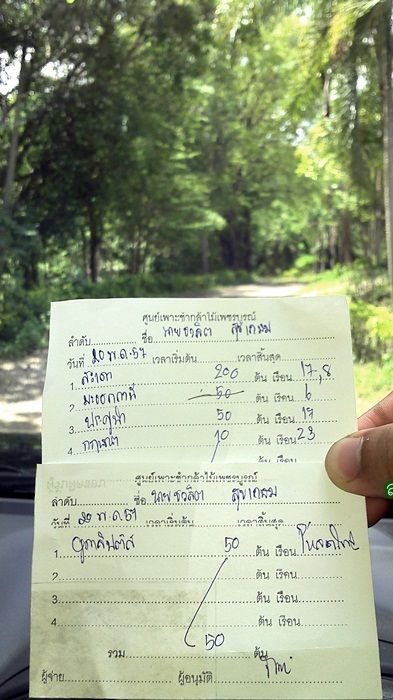 ศูนย์เพาะชำกล้าไม้เพชรบูรณ์
ลำดับ ชื่อ นายชวลิต
วันที่ 20 พ.ค. 57 เวลาเริ่มต้น เวลาสิ้นสุด
1. สะเดา 200 ต้น เรือน 17,8
2. มะฮอกกานี 50 ต้น เรือน 6
3. ประดู่ป่า 50 ต้น เรือน 19
4. 10 ต้น เรือน 23
ศูนย์เพาะชำกล้าไม้เพชรบูรณ์
ลำดับ ชื่อ นายชวลิต
วันที่ 20 พ.ค. 57 เวลาเริ่มต้น เวลาสิ้นสุด
1. ยูคาลิปตัส 50 ต้น เรือน
2. ต้น เรือน
3. ต้น เรือน
4. ต้น เรือน
รวม 50 ต้น
ผู้จ่าย ผู้อนุมัติ